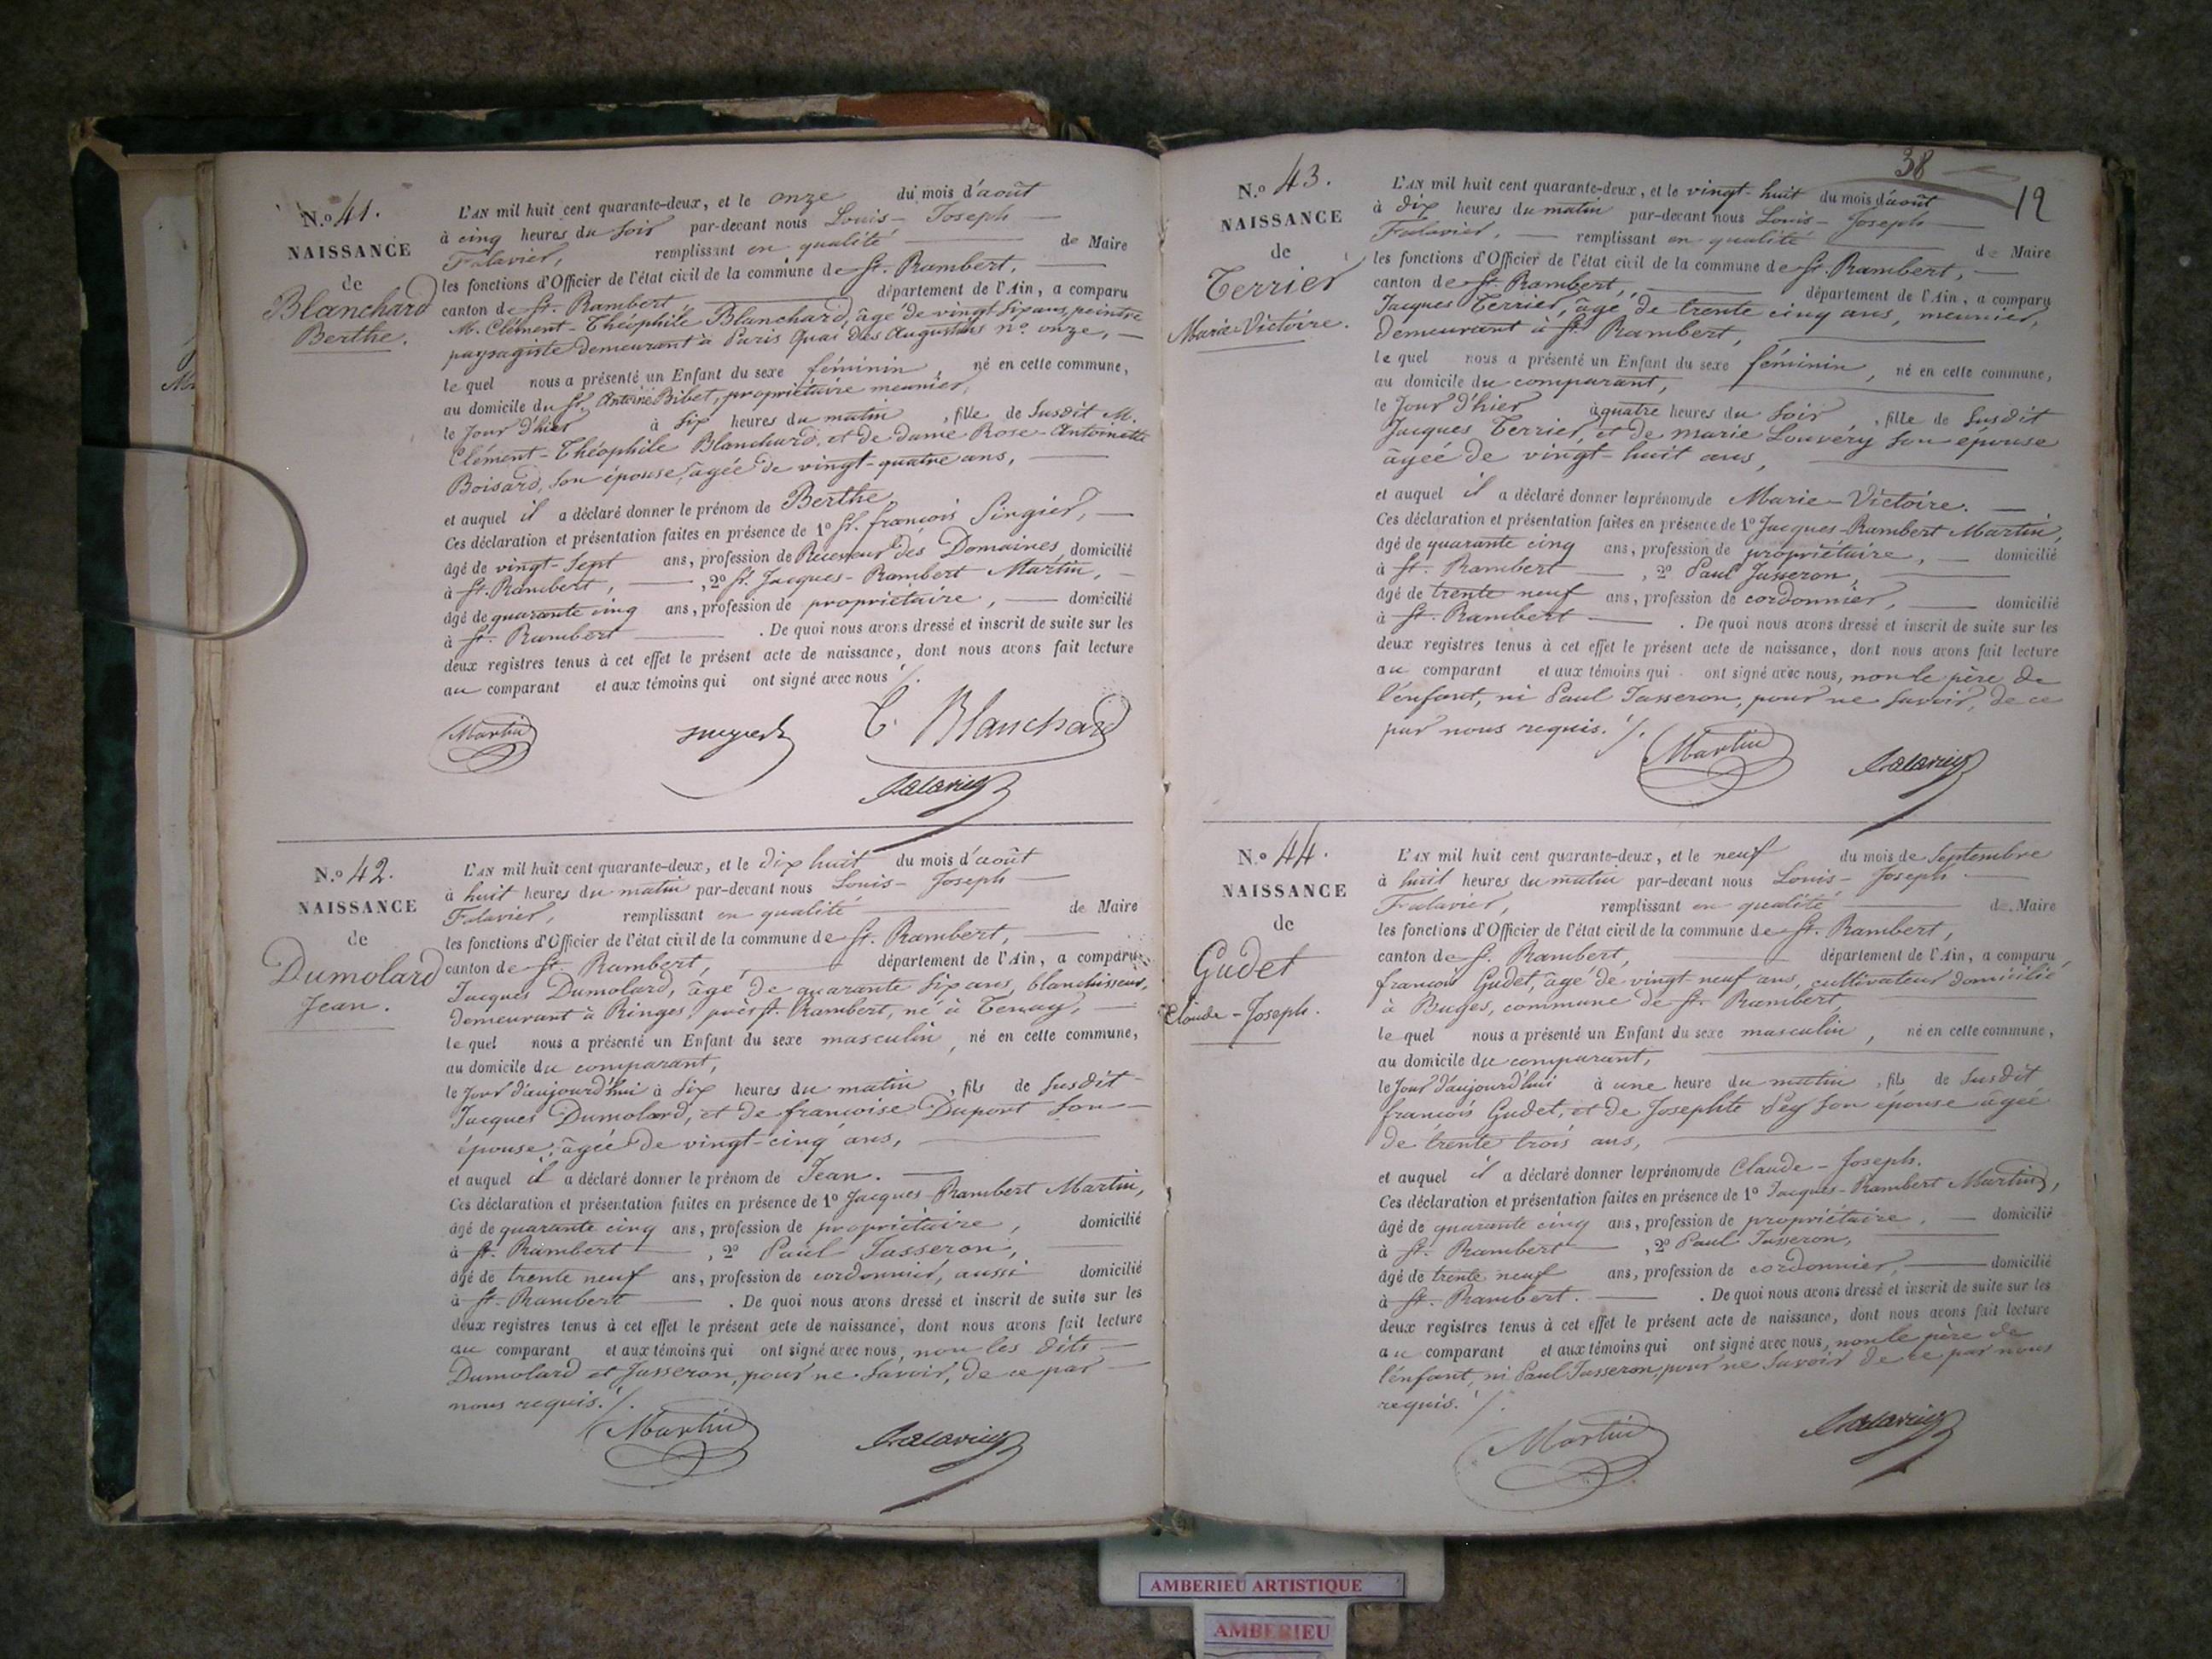 N.º 41.
NAISSANCE
de
Blanchard
Berthe.
L'AN mil huit cent quarante-deux, et le onze du mois d'août
à cinq heures du soir par-devant nous Louis-Joseph
Falavier, remplissant en qualité de Maire
les fonctions d'Officier de l'état civil de la commune de St. Rambert,
canton de St. Rambert département de l'Ain, a comparu
M. Clément-Théophile Blanchard, âgé de vingt six ans, peintre
paysagiste demeurant à Paris Quai des Augustins n.º onze,
le quel nous a présenté un Enfant du sexe féminin, né en cette commune,
au domicile du Sr. Antoine Bibet, propriétaire meunier,
le jour d'hier à six heures du matin, fille de susdit M.
Clément-Théophile Blanchard, et de dame Rose-Antoinette
Boisard, son épouse, âgée de vingt-quatre ans,
et auquel il a déclaré donner le prénom de Berthe
Ces déclaration et présentation faites en présence de 1º Sr. françois Singier,
âgé de vingt-sept ans, profession de Receveur des Domaines, domicilié
à St. Rambert, , 2º Sr. Jacques-Rambert Martin,
âgé de quarante cinq ans, profession de propriétaire, domicilié
à St. Rambert . De quoi nous avons dressé et inscrit de suite sur les
deux registres tenus à cet effet le présent acte de naissance, dont nous avons fait lecture
au comparant et aux témoins qui ont signé avec nous ./.
Martin Singier C. Blanchard
Falavier
N.º 42.
NAISSANCE
de
Dumolard
Jean.
L'AN mil huit cent quarante-deux, et le dix huit du mois d'août
à huit heures du matin par-devant nous Louis-Joseph
Falavier, remplissant en qualité de Maire
les fonctions d'Officier de l'état civil de la commune de St. Rambert,
canton de St. Rambert, département de l'Ain, a comparu
Jacques Dumolard, âgé de quarante six ans, blanchisseur,
demeurant à Ringes, près St. Rambert, né à Tenay,
le quel nous a présenté un Enfant du sexe masculin, né en cette commune,
au domicile du comparant,
le jour d'aujourd'hui à six heures du matin, fils de susdit
Jacques Dumolard, et de françoise Dupont son
épouse, âgée de vingt-cinq ans,
et auquel il a déclaré donner le prénom de Jean.
Ces déclaration et présentation faites en présence de 1º Jacques-Rambert Martin,
âgé de quarante cinq ans, profession de propriétaire, domicilié
à St. Rambert , 2º Paul Jasseron,
âgé de trente neuf ans, profession de cordonnier, aussi domicilié
à St. Rambert . De quoi nous avons dressé et inscrit de suite sur les
deux registres tenus à cet effet le présent acte de naissance, dont nous avons fait lecture
au comparant et aux témoins qui ont signé avec nous, non les dits
Dumolard et Jasseron, pour ne savoir, de ce par
nous requis. ./.
Martin Falavier
38
12
N.º 43.
NAISSANCE
de
Terrier
Marie-Victoire.
L'AN mil huit cent quarante-deux, et le vingt-huit du mois d'août
à dix heures du matin par-devant nous Louis-Joseph
Falavier, remplissant en qualité de Maire
les fonctions d'Officier de l'état civil de la commune de St. Rambert,
canton de St. Rambert, département de l'Ain, a comparu
Jacques Terrier, âgé de trente cinq ans, meunier,
demeurant à St. Rambert,
le quel nous a présenté un Enfant du sexe féminin, né en cette commune,
au domicile du comparant,
le jour d'hier à quatre heures du soir, fille de susdit
Jacques Terrier, et de marie Louvéry son épouse
âgée de vingt-huit ans,
et auquel il a déclaré donner les prénoms de Marie-Victoire.
Ces déclaration et présentation faites en présence de 1º Jacques-Rambert Martin,
âgé de quarante cinq ans, profession de propriétaire, domicilié
à St. Rambert , 2º Paul Jasseron,
âgé de trente neuf ans, profession de cordonnier, domicilié
à St. Rambert . De quoi nous avons dressé et inscrit de suite sur les
deux registres tenus à cet effet le présent acte de naissance, dont nous avons fait lecture
au comparant et aux témoins qui ont signé avec nous, non le père de
l'enfant, ni Paul Jasseron, pour ne savoir, de ce
par nous requis. ./.
Martin Falavier
N.º 44.
NAISSANCE
de
Gudet
Claude-Joseph.
L'AN mil huit cent quarante-deux, et le neuf du mois de Septembre
à huit heures du matin par-devant nous Louis-Joseph
Falavier, remplissant en qualité de Maire
les fonctions d'Officier de l'état civil de la commune de St. Rambert,
canton de St. Rambert, département de l'Ain, a comparu
françois Gudet, âgé de vingt neuf ans, cultivateur domicilié
à Buges, commune de St. Rambert
le quel nous a présenté un Enfant du sexe masculin, né en cette commune,
au domicile du comparant,
le jour d'aujourd'hui à une heure du matin, fils de susdit
françois Gudet, et de Josephte Pey son épouse âgée
de trente trois ans,
et auquel il a déclaré donner les prénoms de Claude-Joseph.
Ces déclaration et présentation faites en présence de 1º Jacques-Rambert Martin,
âgé de quarante cinq ans, profession de propriétaire, domicilié
à St. Rambert , 2º Paul Jasseron,
âgé de trente neuf ans, profession de cordonnier, domicilié
à St. Rambert. . De quoi nous avons dressé et inscrit de suite sur les
deux registres tenus à cet effet le présent acte de naissance, dont nous avons fait lecture
au comparant et aux témoins qui ont signé avec nous, non le père de
l'enfant, ni Paul Jasseron, pour ne savoir de ce par nous
requis. ./.
Martin Falavier
AMBERIEU ARTISTIQUE
AMBERIEU